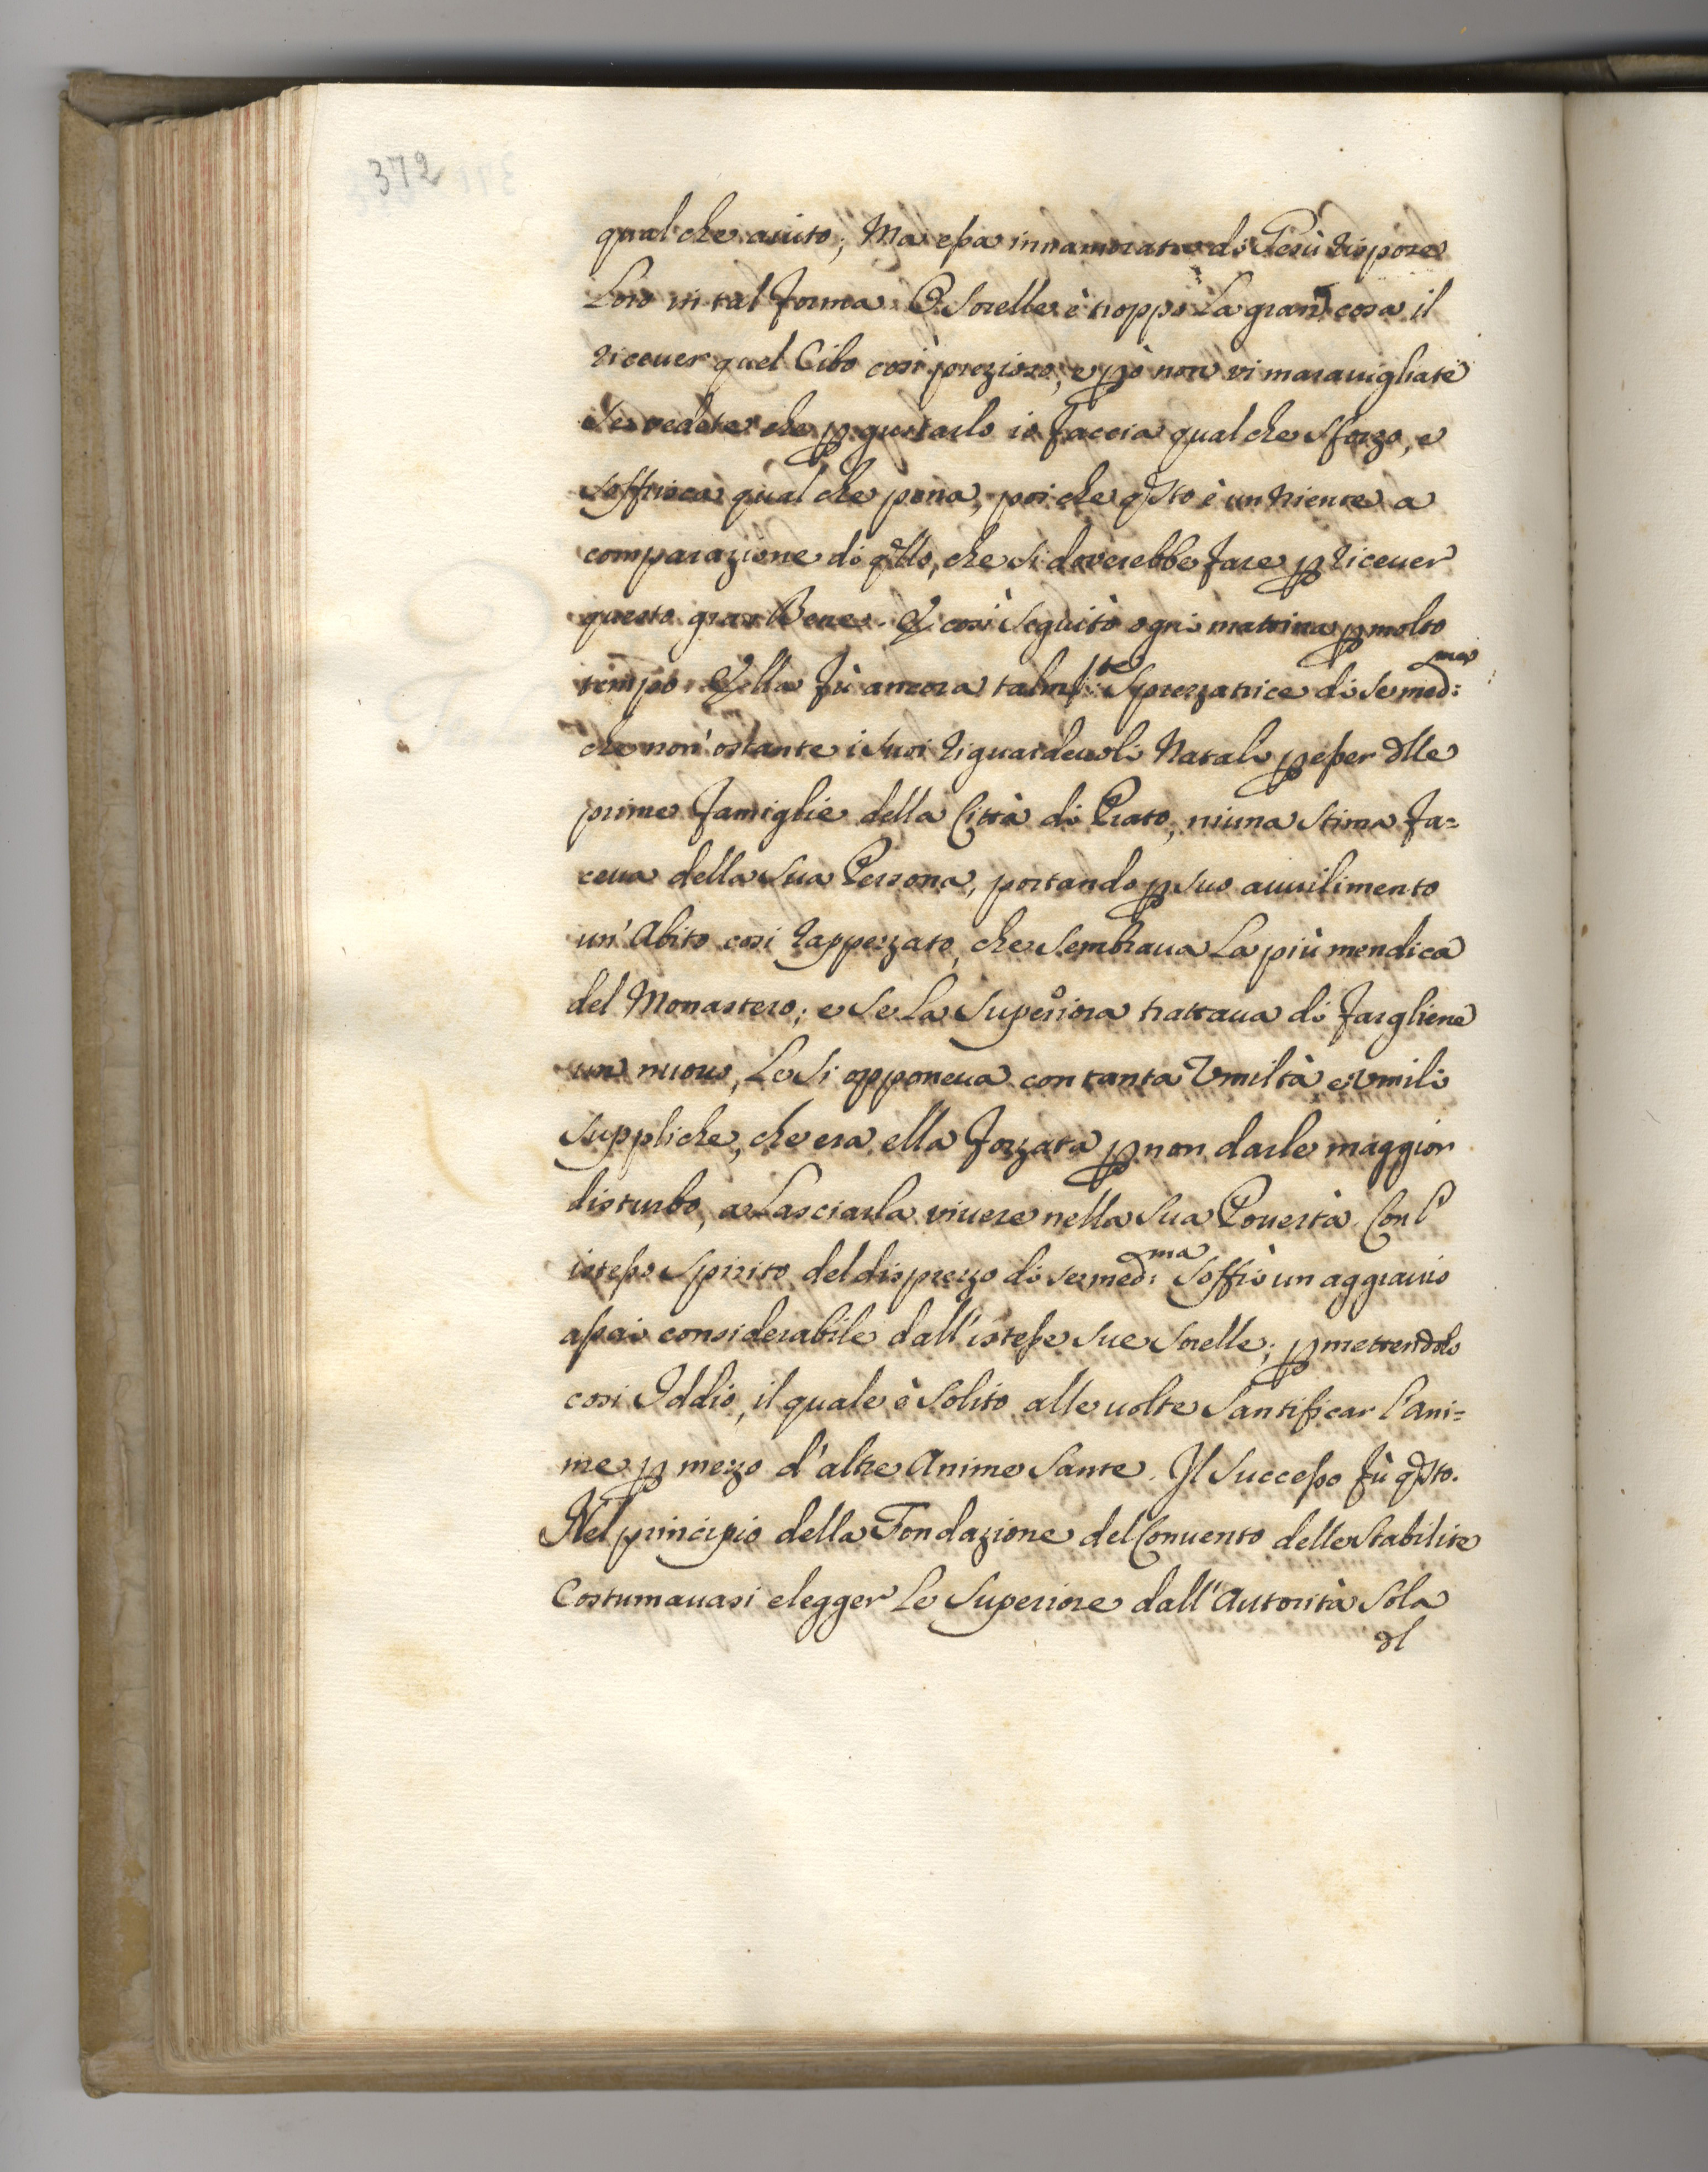 372
qualche aiuto; Ma essa innamorata di Gesù rispose
Loro in tal forma. O Sorelle è troppo La gran cosa il
riceuer quel Cibo così prezioso, e però non vi marauigliate
Se vedete che p gustarlo io faccia qualche sforzo, e
soffrisca qualche pena, poiche qsto è un niente a
comparazione di qllo, che si doverebbe fare p riceuer
questo gran Bene. E così seguitò ogni mattina p molto
tempo. Ella fù ancora talmte Sprezzatrice di se medma:
che non'ostante i suoi riguardeuoli Natali p esser dlle
prime famiglie della Città di Prato, niuna stima fa=
ceua della sua Persona, portando p suo auuilimento
un'Abito così rappezzato, che sembraua La più mendica
del Monastero; e se La Superiora trattaua di fargliene
un nuouo, Le si opponeua con tanta Vmiltà e vmili
suppliche, che era ella forzata p non darle maggior
disturbo, a Lasciarla viuere nella sua Pouertà. Con l'
istesso spirito del disprezzo di se medma: Soffrì un aggrauio
assai considerabile dall'istesse sue sorelle; pmettendolo
così Iddio, il quale è solito alle uolte Santificar l'Ani=
me p mezzo d'altre Anime Sante. Il Successo fù qsto.
Nel principio della Fondazione del Conuento delle Stabilite
Costumauasi elegger Le Superiore dall'Autorità Sola
dl